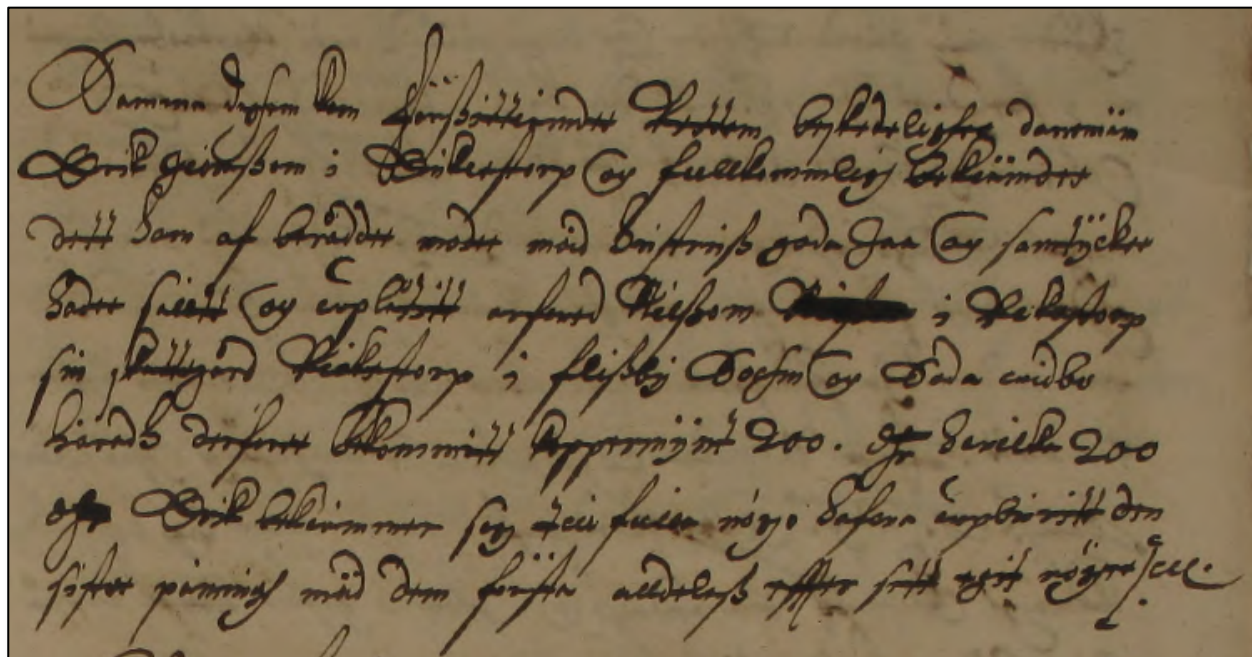 Samma daghem kom för Sittiandes Rettem beskedeligher danemän
Erik Jönßom i Wickestorp och fullkommligh bekiände
dett ham af berådde mode mäd hustruß goda Jaa och samtÿcke
hade såldtt och uplåtitt arfved Nilßom i Rekestorp
sin skattegård Wickestorp i flißbÿ Sochn och Södra widbo
häradh derföre bekommitt koppermÿntt 200. dr hvilka 200
dr Erik bekiänner sig till fulla nöÿe hafva upburitt den
siste päningh mäd dem första alldeleß effter sitt egit nöÿe